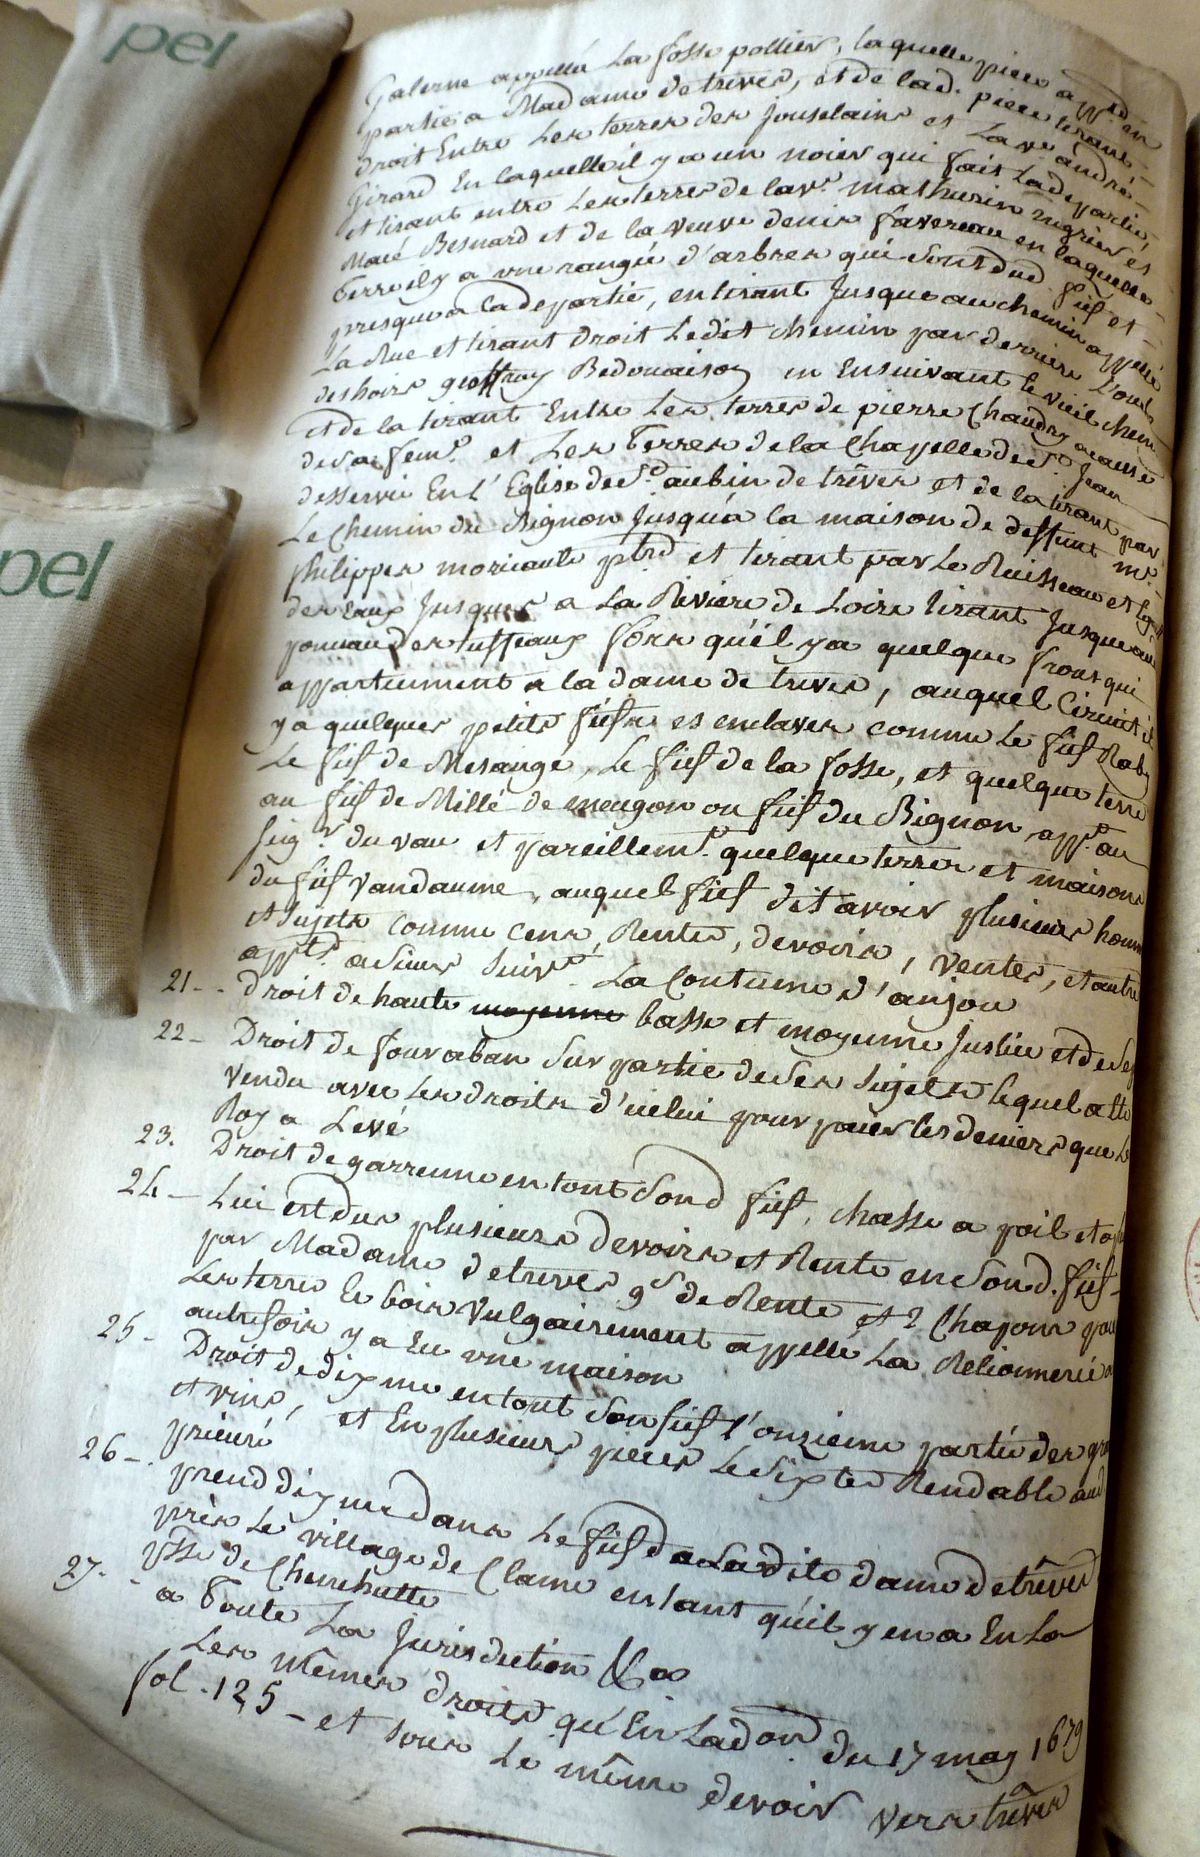 pel
pel
Galerne appellée La fosse pottier, laquelle piece app.t en
partie a Madame detreves, et de lad. piece tirant
droit Entre Les terres des Jouselains et La ve andré
Girard En laquelle il y a un noier qui fait La departie,
et tirant entre Les terres de la ve. mathurin
Macé Besnard et de la veuve denis favereau en laquelle
terre il y a une rangée d'arbres qui sont dud fief et
presque a la departie, en tirant Jusque au chemin appellé
La Rue et tirant droit Ledit chemin par derriere
des hoirs geoffroy Bedouaison en Ensuivant le vieil chem
et de la tirant Entre Les terres de pierre Chaudry acause
de sa fem.e et Les Terres de la Chapelle de St Jean
desservie En L'Eglise de St aubin de trêves et de la tirant par
Le Chemin du Bignon Jusqu'a la maison de deffunt m.e
philippes moricault ptre et tirant par Le Ruisseau et
des Eaux Jusques a La Riviere de Loire tirant Jusque au
des tuffeaux fors qu'il y a quelque qui
appartiennent a la dame de treves, auquel Circuit il
y a quelques petits fiefs es enclaves comme Le fief Raby
Le fief de Mesange, Le fief de la fosse, et quelque terre
au fief de Millé de meugon ou fief du Bignon app.t au
seig.r du vau et pareillem.t quelque terres et maisons
du fief vandaume, auquel fief dit avoir plusieurs homm
et sujets comme cens, Rentes, devoirs, ventes, et autre
app.ts suiv.t La Coutume d'anjou
21 - Droit de haute moyenne basse et moyenne Justice et de
22 - Droit de fouraban sur partie de ses sujets Lequel a
vendu avec Les droits d'icelui pour paier les deniers que Le
Roy a Levé
23. Droit de garrenne en tout Sond fief, chasse a poil et a
24 - Lui est dus plusieurs devoirs et Rente en Sond. fief
par Madame detreves 9s de Rente et 2 Chapons pour
Les terres Le bois vulgairement appellé La
autrefois y a Eu une maison
25 - Droit de dixme en tout Son fief l'onzieme partie des
et vins, et En plusieurs pieces Le sixte Rendable aud
prieuré
26 - prend dixme dans Le fief de Ladite dame detrêves
près Le village de Clame entant qu'il y en a En La
psse de Chenehutte
27. - a Toute La Jurisdiction &a
Les mêmes droits qu'En Ladon du 17 may 1679
fol. 125 - et sous Le même devoir vers trêves